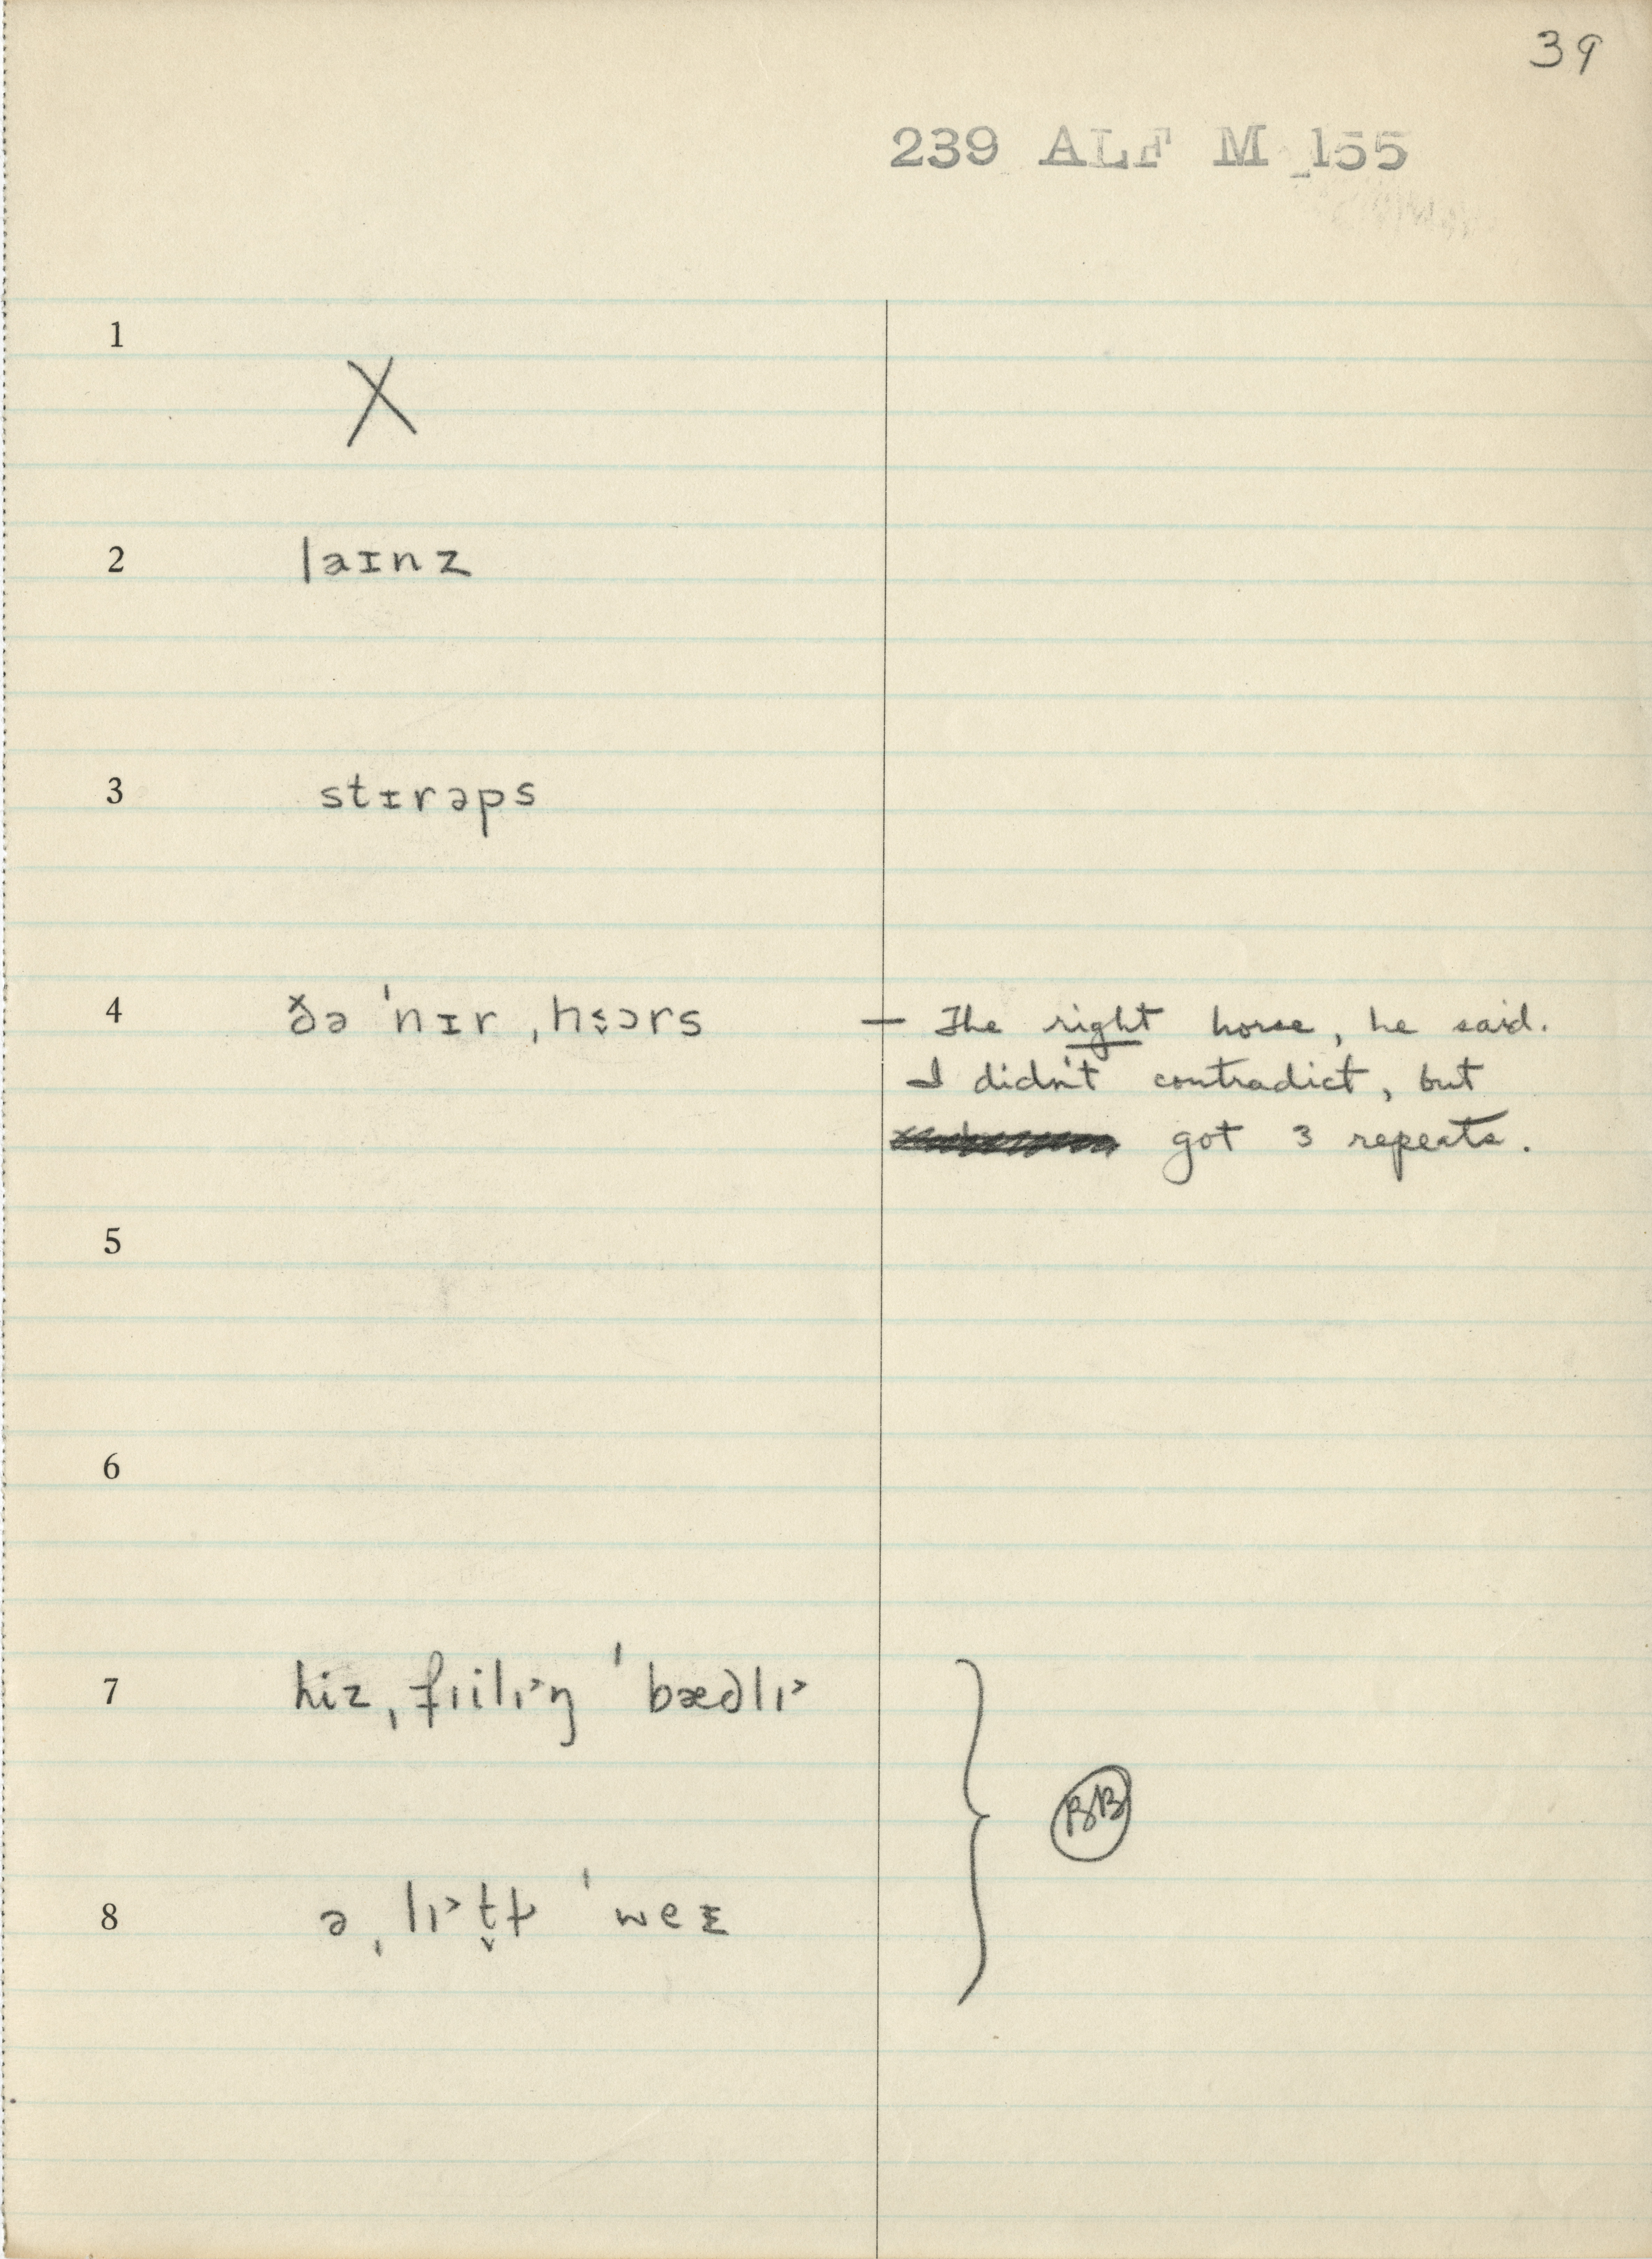 39
239 ALF M 155
1
X
2 laɪnz
3 stɪrəps
4 ðə ˈnɪr ˌhɔ̬ɔrs — The right horse, he said.
I didn't contradict, but
got 3 repeats.
5
6
7 hiz ˌfɪilɪ˃ŋ ˈbædlɪ˃
8 ə ˌlɪ˃t̬ɫ ˈweɪ
BB